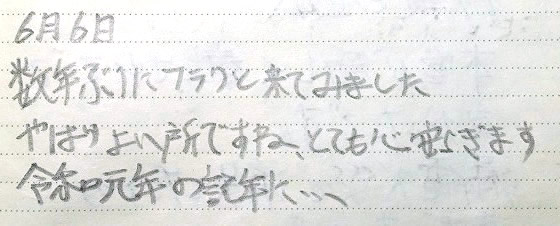 6月6日
数年ぶりにフラりと来てみました
やはりよい所ですね、とても心安らぎます
令和元年の記年に...